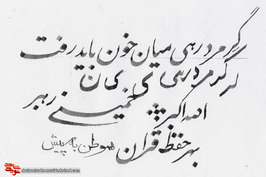 گر مرد رهی میان خون باید رفت
گر مرد رهی ی ی ن
الله اکبر خمینی رهبر
بهر حفظ قرآن هموطن به پیش